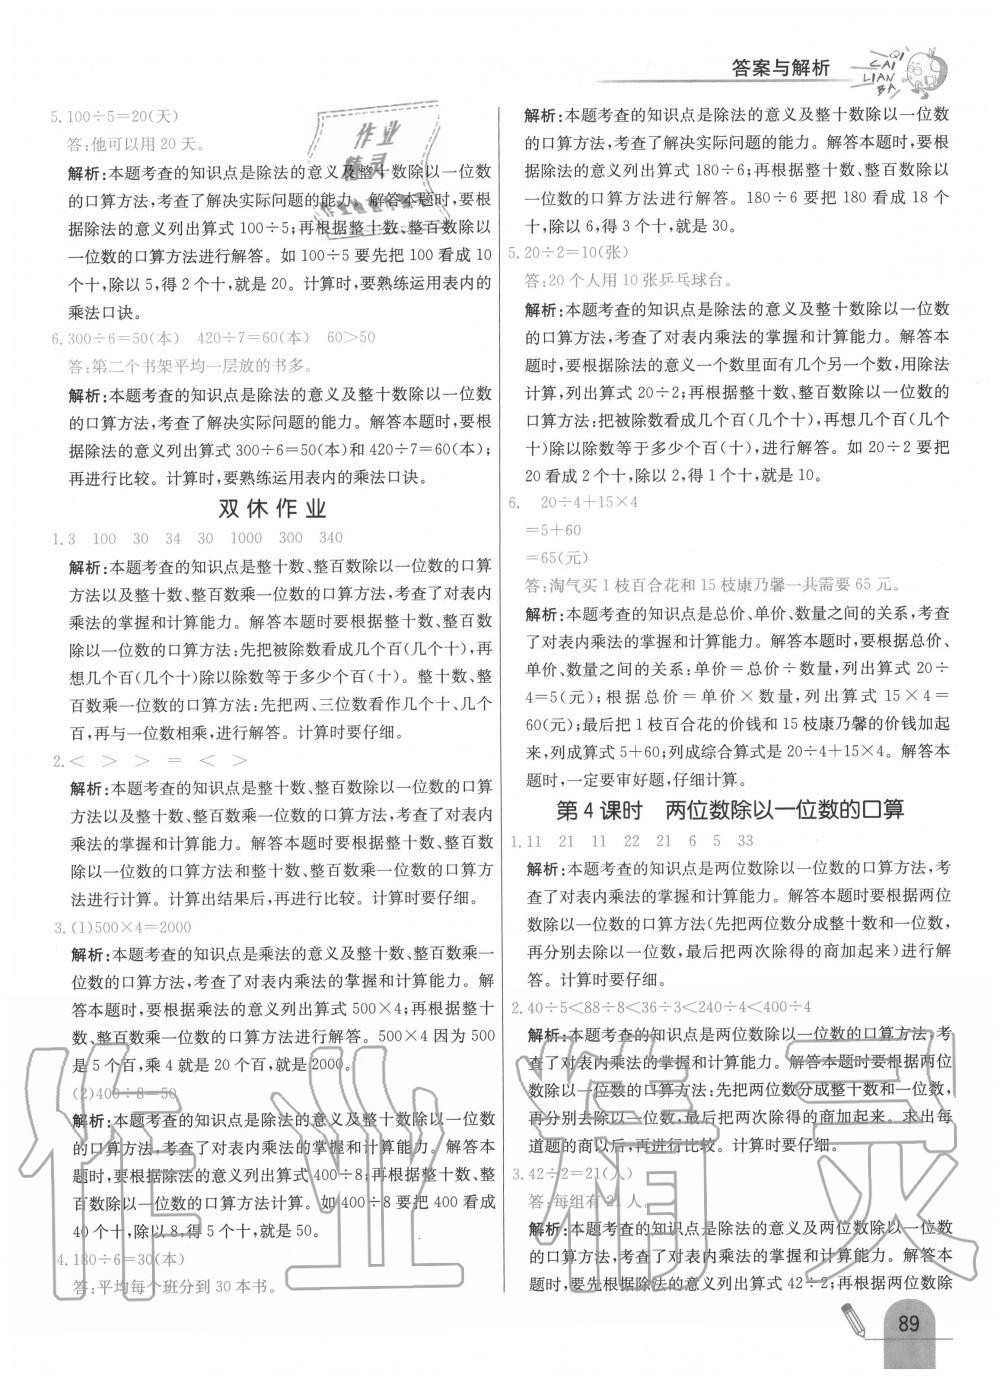 答案与解析
QI
CAI
LIAN
BA
5.100÷5=20(天)
答:他可以用 20 天。
解析:本题考查的知识点是除法的意义及整十数除以一位数
的口算方法,考查了解决实际问题的能力。解答本题时,要根
据除法的意义列出算式 100÷5;再根据整十数、整百数除以
一位数的口算方法进行解答。如 100÷5 要先把 100 看成 10
个十,除以 5,得 2 个十,就是 20。计算时,要熟练运用表内的
乘法口诀。
6.300÷6=50(本) 420÷7=60(本) 60>50
答:第二个书架平均一层放的书多。
解析:本题考查的知识点是除法的意义及整十数除以一位数
的口算方法,考查了解决实际问题的能力。解答本题时,要根
据除法的意义列出算式 300÷6=50(本)和 420÷7=60(本);
再进行比较。计算时,要熟练运用表内的乘法口诀。
双休作业
1.3 100 30 34 30 1000 300 340
解析:本题考查的知识点是整十数、整百数除以一位数的口算
方法以及整十数、整百数乘一位数的口算方法,考查了对表内
乘法的掌握和计算能力。解答本题时要根据整十数、整百数
除以一位数的口算方法:先把被除数看成几个百(几个十),再
想几个百(几个十)除以除数等于多少个百(十)。整十数、整
百数乘一位数的口算方法:先把两、三位数看作几个十、几个
百,再与一位数相乘,进行解答。计算时要仔细。
2.< > > = < >
解析:本题考查的知识点是整十数、整百数除以一位数的口算
方法以及整十数、整百数乘一位数的口算方法,考查了对表内
乘法的掌握和计算能力。解答本题时,要根据整十数、整百数
除以一位数的口算方法以及整十数、整百数乘一位数的口算
方法进行计算。计算出结果后,再进行比较。计算时要仔细。
3.(1)500×4=2000
解析:本题考查的知识点是乘法的意义及整十数、整百数乘一
位数的口算方法,考查了对表内乘法的掌握和计算能力。解
答本题时,要根据乘法的意义列出算式 500×4;再根据整十
数、整百数乘一位数的口算方法进行解答。500×4 因为 500
是 5 个百,乘 4 就是 20 个百,就是 2000。
(2)400÷8=50
解析:本题考查的知识点是除法的意义及整十数除以一位数
的口算方法,考查了对表内乘法的掌握和计算能力。解答本
题时,要根据除法的意义列出算式 400÷8;再根据整十数、整
百数除以一位数的口算方法计算。如 400÷8 要把 400 看成
40 个十,除以 8,得 5 个十,就是 50。
4.180÷6=30(本)
答:平均每个班分到 30 本书。
解析:本题考查的知识点是除法的意义及整十数除以一位数
的口算方法,考查了解决实际问题的能力。解答本题时,要根
据除法的意义列出算式 180÷6;再根据整十数、整百数除以
一位数的口算方法进行解答。180÷6 要把 180 看成 18 个
十,除以 6,得 3 个十,就是 30。
5.20÷2=10(张)
答:20 个人用 10 张乒乓球台。
解析:本题考查的知识点是除法的意义及整十数除以一位数
的口算方法,考查了对表内乘法的掌握和计算能力。解答本
题时,要根据除法的意义一个数里面有几个另一个数,用除法
计算,列出算式 20÷2;再根据整十数、整百数除以一位数的
口算方法:把被除数看成几个百(几个十),再想几个百(几个
十)除以除数等于多少个百(十),进行解答。如 20÷2 要把
20 看成 2 个十,除以 2,得 1 个十,就是 10。
6. 20÷4+15×4
=5+60
=65(元)
答:淘气买 1 枝百合花和 15 枝康乃馨一共需要 65 元。
解析:本题考查的知识点是总价、单价、数量之间的关系,考查
了对表内乘法的掌握和计算能力。解答本题时,要根据总价、
单价、数量之间的关系:单价=总价÷数量,列出算式 20÷
4=5(元);根据总价=单价×数量,列出算式 15×4=
60(元);最后把 1 枝百合花的价钱和 15 枝康乃馨的价钱加起
来,列成算式 5+60;列成综合算式是 20÷4+15×4。解答本
题时,一定要审好题,仔细计算。
第 4 课时 两位数除以一位数的口算
1.11 21 11 22 21 6 5 33
解析:本题考查的知识点是两位数除以一位数的口算方法,考
查了对表内乘法的掌握和计算能力。解答本题时要根据两位
数除以一位数的口算方法(先把两位数分成整十数和一位数,
再分别去除以一位数,最后把两次除得的商加起来)进行解
答。计算时要仔细。
2.40÷5<88÷8<36÷3<240÷4<400÷4
解析:本题考查的知识点是两位数除以一位数的口算方法,考
查了对表内乘法的掌握和计算能力。解答本题时要根据两位
数除以一位数的口算方法:先把两位数分成整十数和一位数,
再分别去除以一位数,最后把两次除得的商加起来。求出每
道题的商以后,再进行比较。计算时要仔细。
3.42÷2=21(人)
答:每组有 21 人。
解析:本题考查的知识点是除法的意义及两位数除以一位数
的口算方法,考查了对表内乘法的掌握和计算能力。解答本
题时,要先根据除法的意义列出算式 42÷2;再根据两位数除
89
作业
精灵
作业精灵